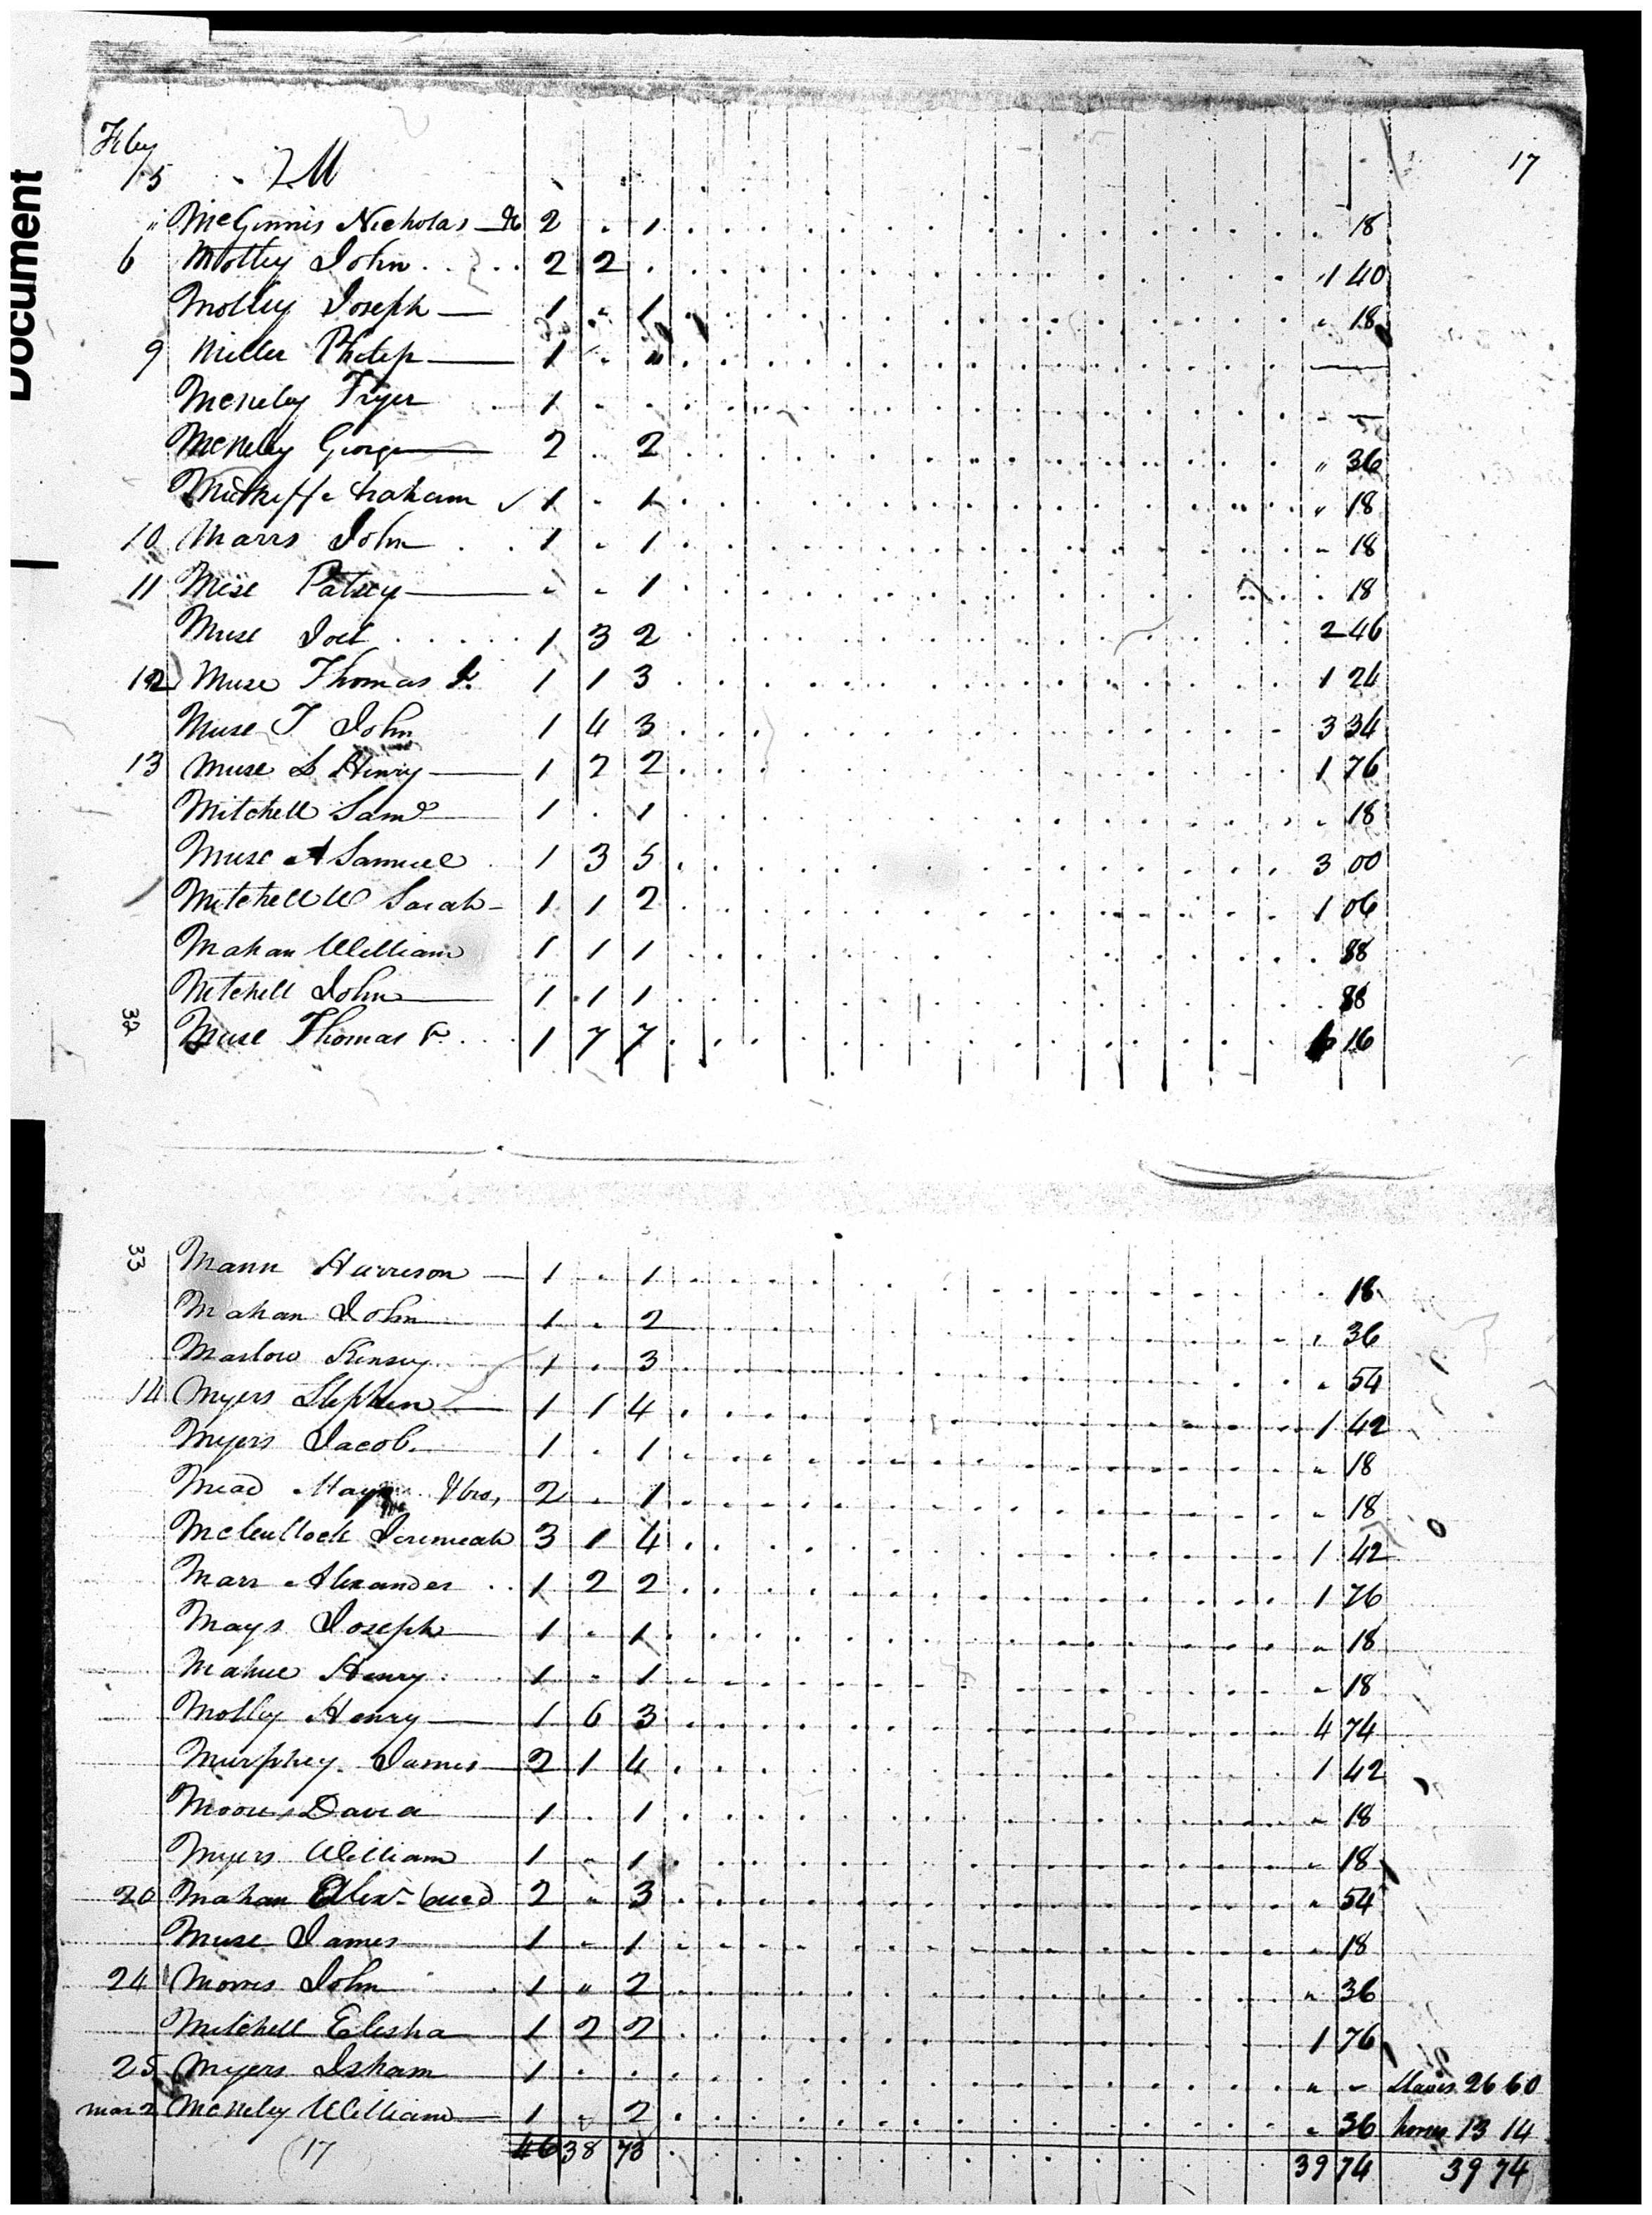 Document
Feby
15 M 17
" McGinnis Nicholas 2 . 1 18
6 Motley John 2 2 . 1 40
Motley Joseph 1 " 1 " 18
9 Miller Philip 1 . "
McNeley Fryer 1 -
McNeley George 2 . 2 " 36
1 - 1 " 18
10 Marrs John 1 - 1 - 18
11 Mise Patsey - - 1 . 18
Muse Joel 1 3 2 2 46
12 Muse Thomas Jr. 1 1 3 1 24
Muse T John 1 4 3 3 34
13 Muse S Henry 1 2 2 1 76
Mitchell Saml 1 . 1 " 18
Muse A Samuel 1 3 5 3 00
Mitchell W Sarah 1 1 2 1 06
Mahan William 1 1 1 . 88
Mitchell John 1 1 1 . 88
32 Muse Thomas 1 7 7 6 16
33 Mann Harrison 1 - 1 . 18
Mahan John 1 - 2 " 36
Marlow Kinsey 1 . 3 " 54
14 Myers Stephen 1 1 4 1 42
Myers Jacob 1 . 1 " 18
Mead 2 - 1 " 18
McCullock Jeremeah 3 1 4 1 42
Marr Alexander 1 2 2 1 76
Mays Joseph 1 - 1 " 18
Mahue Henry 1 - 1 " 18
Motley Henry 1 6 3 4 74
Murphey James 2 1 4 1 42
Moore David 1 . 1 " 18
Myers William 1 - 1 " 18
20 Mahan 2 " 3 " 54
Muse James 1 - 1 - 18
24 Morris John 1 " 2 " 36
Mitchell Elisha 1 2 2 1 76
25 Myers Isham 1 . . " - Slaves 26 60
mar 2 McNeley William 1 " 2 " 36 horses 13 14
(17 46 38 73 39 74 39 74